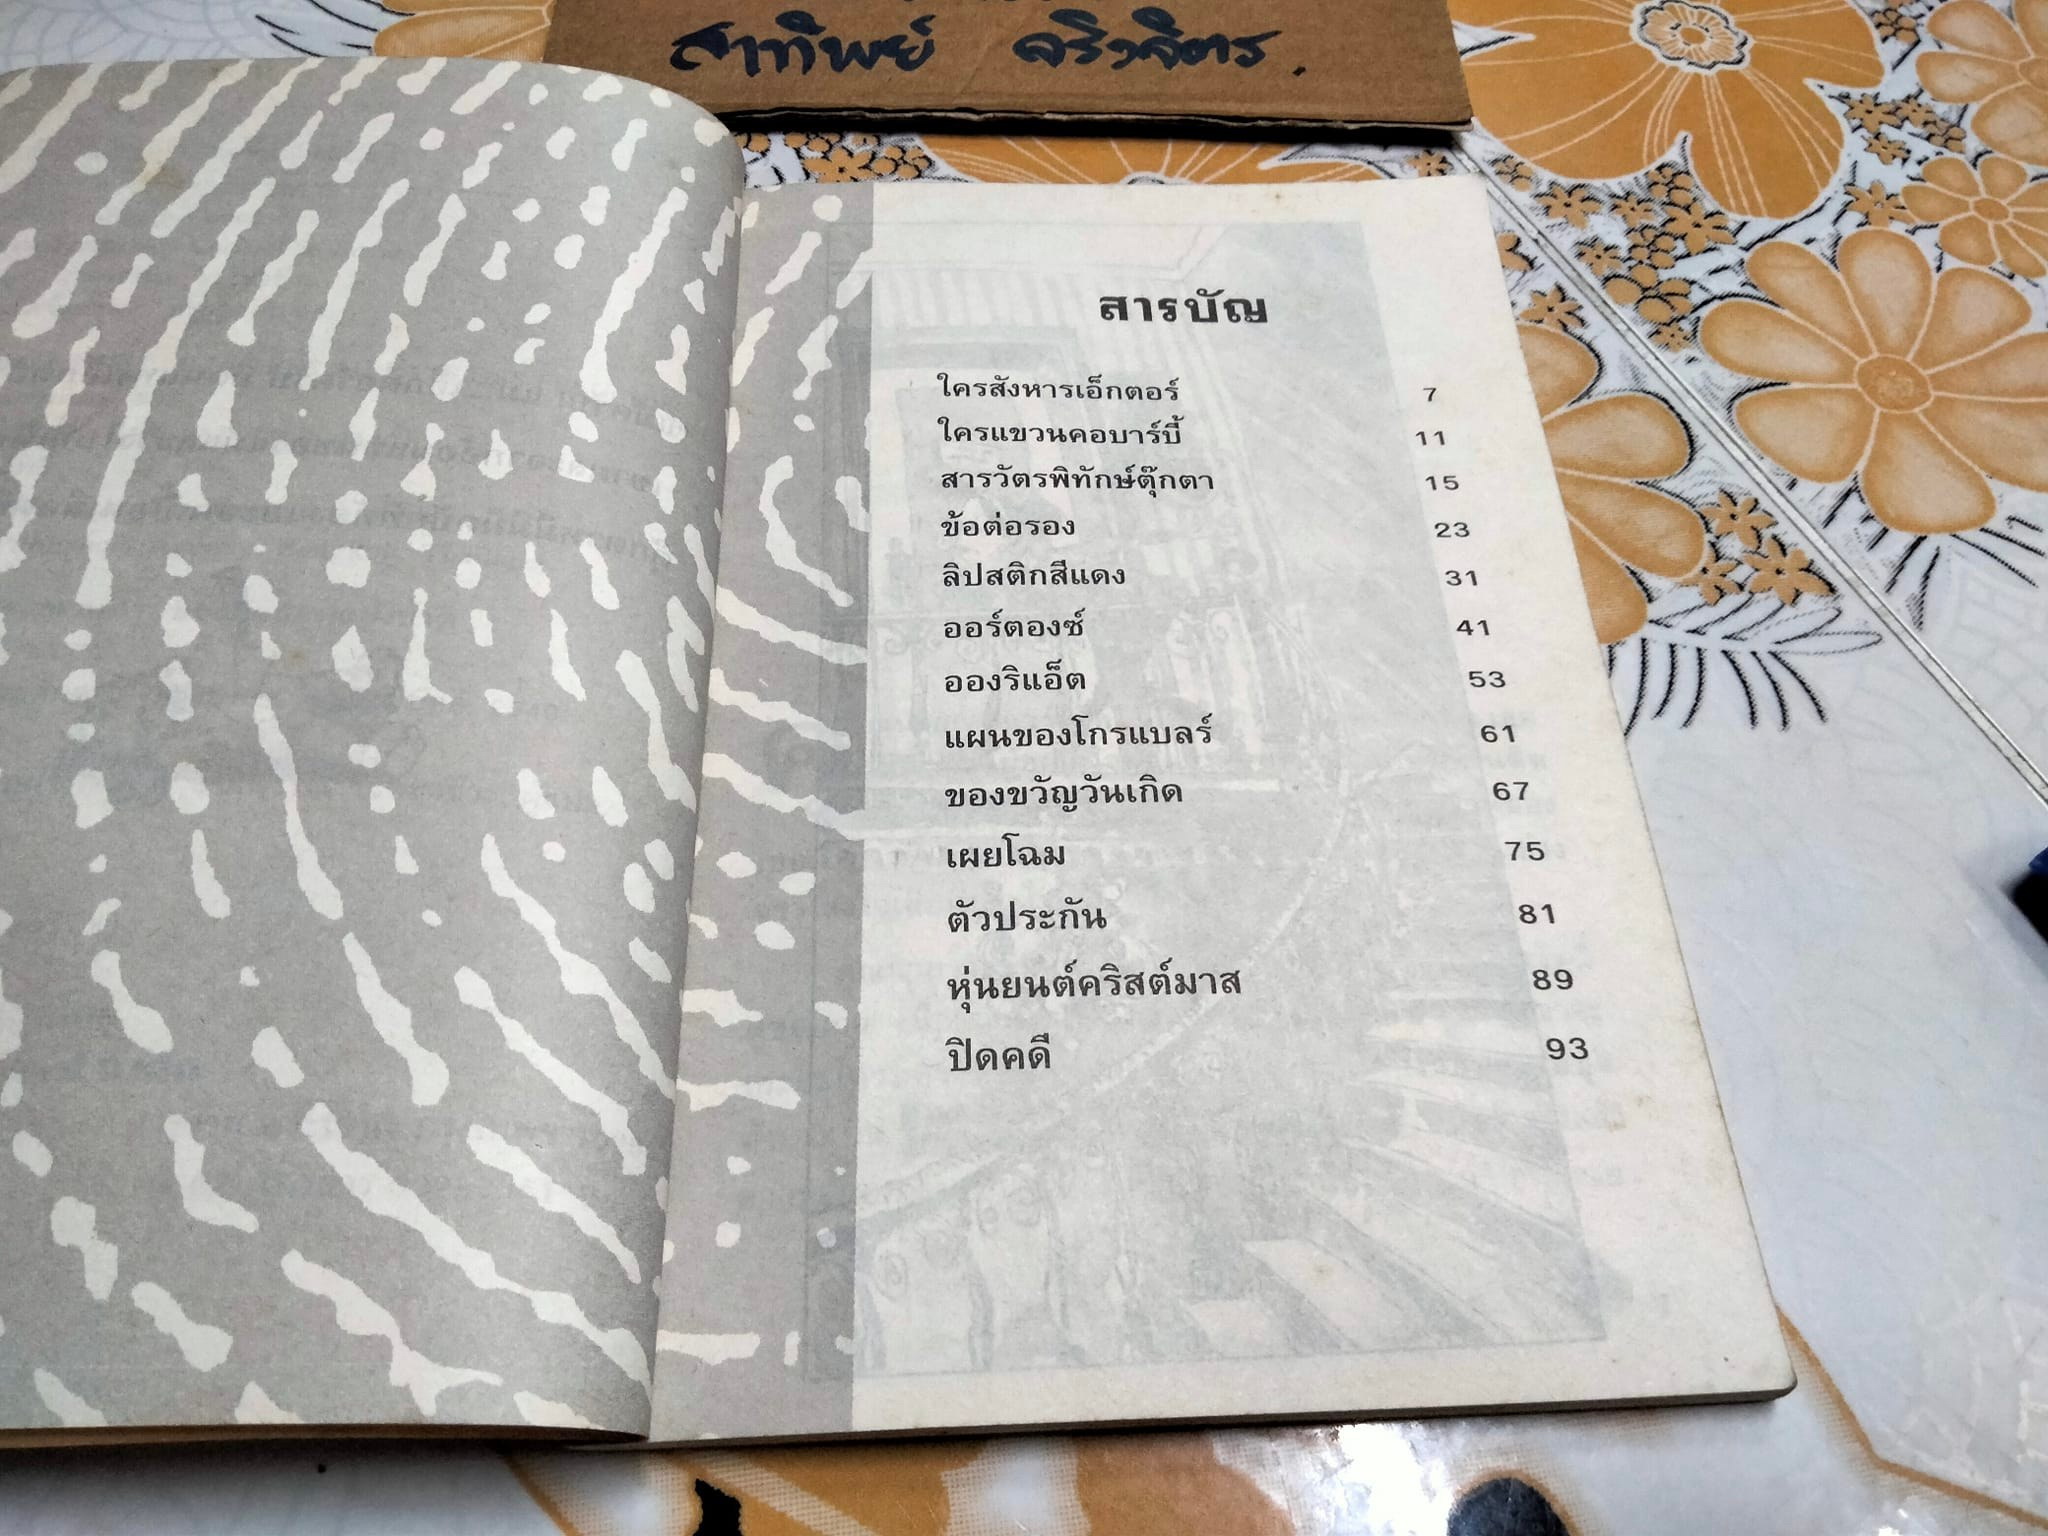 สาทิพย์ จริงจิตร.
สารบัญ
ใครสังหารเอ็กตอร์ 7
ใครแขวนคอบาร์บี้ 11
สารวัตรพิทักษ์ตุ๊กตา 15
ข้อต่อรอง 23
ลิปสติกสีแดง 31
ออร์ตองซ์ 41
อองริแอ็ต 53
แผนของโกรแบลร์ 61
ของขวัญวันเกิด 67
เผยโฉม 75
ตัวประกัน 81
หุ่นยนต์คริสต์มาส 89
ปิดคดี 93